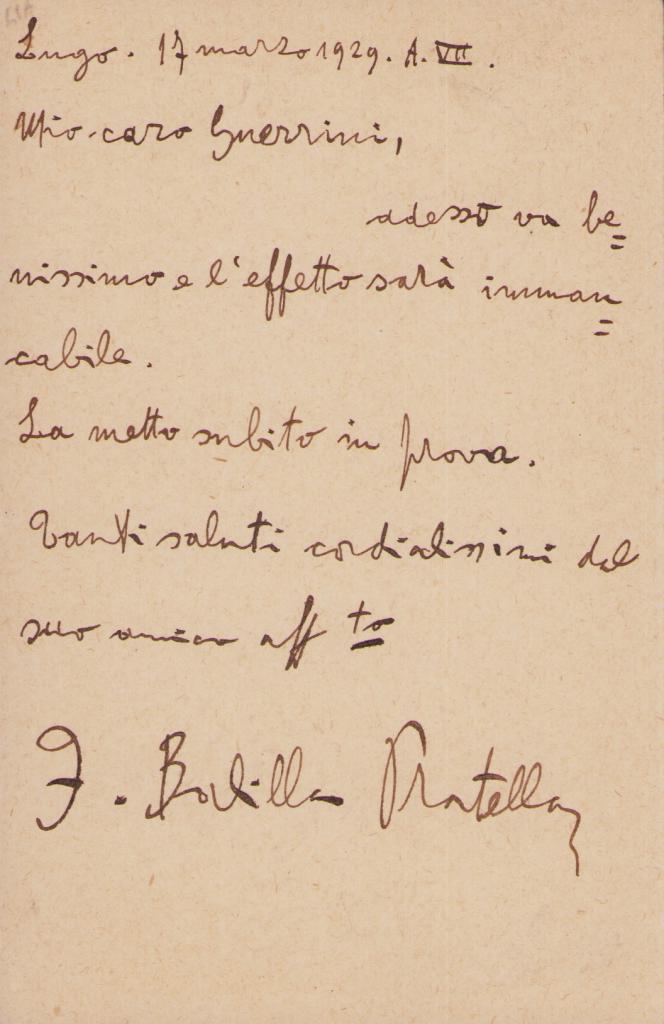 Lugo. 17 marzo 1929. A. VII.
Mio caro Guerrini,
adesso va be=
nissimo e l'effetto sarà imman=
cabile.
La metto subito in prova.
Tanti saluti cordialissimi dal
suo amico aff to
F. Balilla Pratella